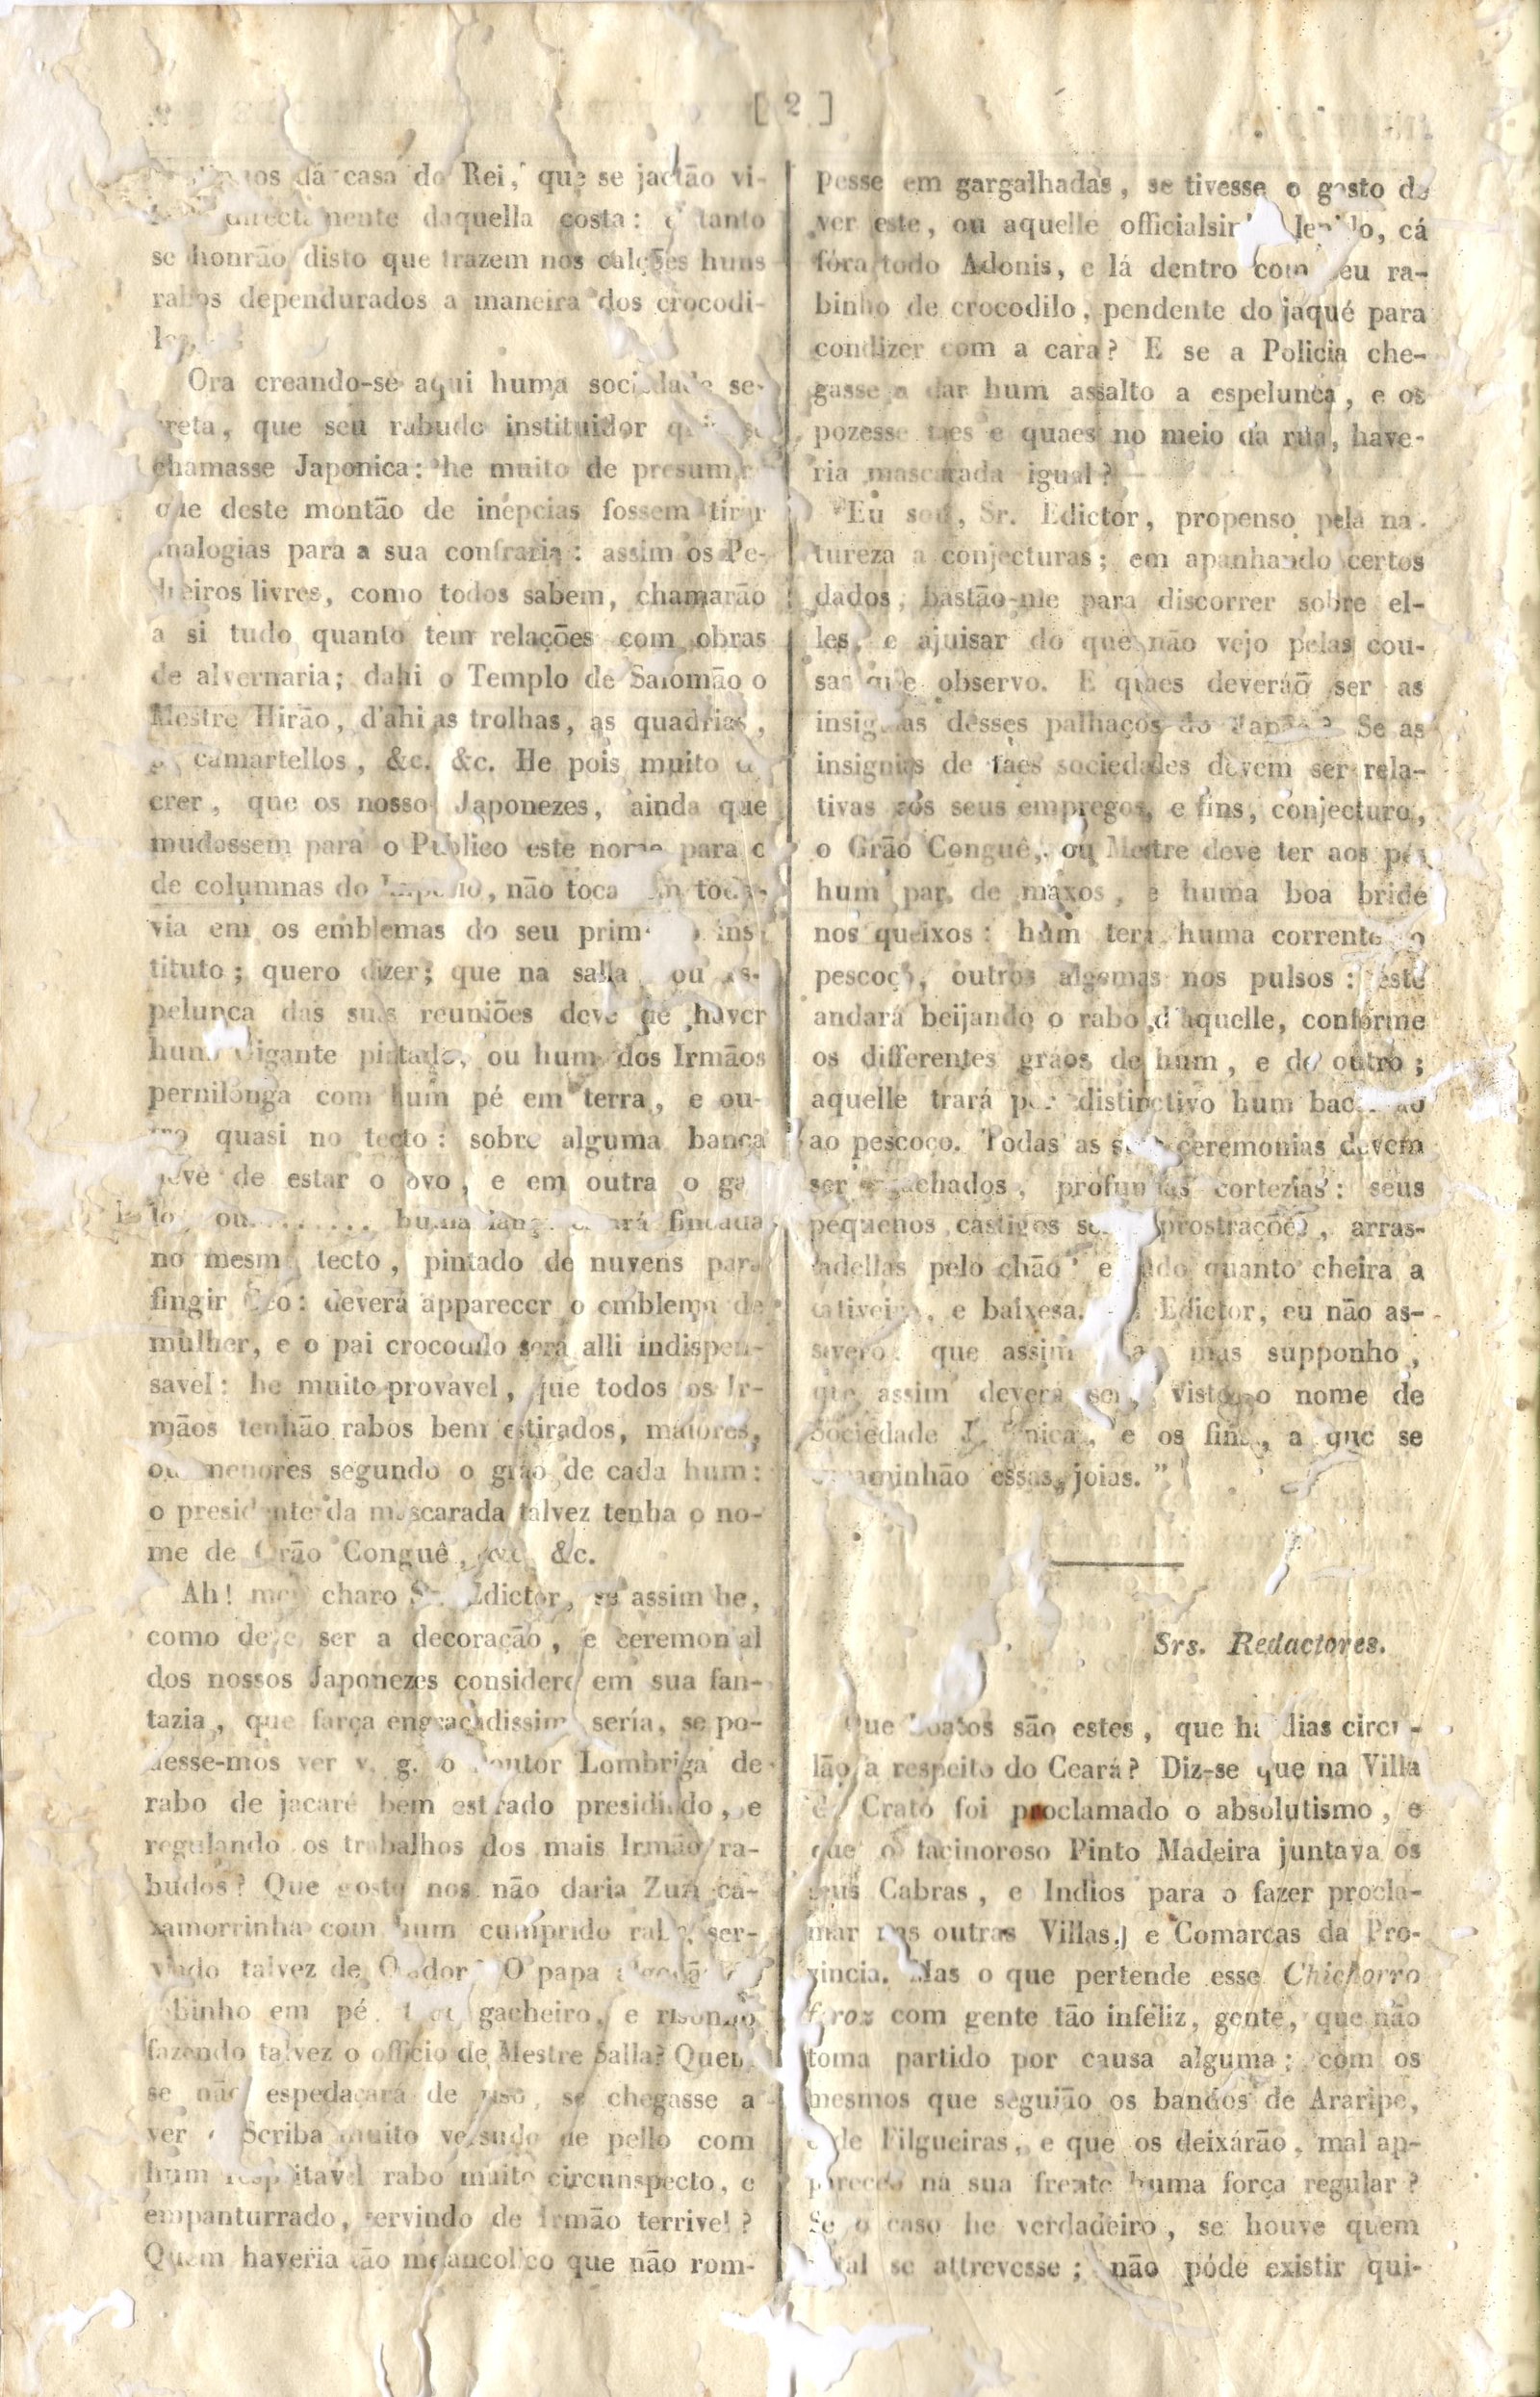 [ 2 ]
dá casa do Rei, que se jactão vi-
directamente daquella costa: e tanto
se honrão disto que trazem nos calções huns
rabos dependurados a maneira dos crocodi-
los.
Ora creando-se aqui huma sociedade se-
creta, que seu rabudo instituidor quiz se
chamasse Japonica: he muito de presumir
que deste montão de inepcias fossem tirar
analogias para a sua confraria: assim os Pe-
dreiros livres, como todos sabem, chamarão
a si tudo quanto tem relações com obras
de alvernaria; dahi o Templo de Salomão o
Mestre Hirão, d'ahi as trolhas, as quadrias,
camartellos, &c. &c. He pois muito
crer, que os nossos Japonezes, ainda que
mudassem para o Publico este nome para o
de columnas do Imperio, não toca toda-
via em os emblemas do seu primeiro ins-
tituto; quero dizer; que na salla, ou es-
pelunca das suas reuniões deve de haver
hum Gigante pintado, ou hum dos Irmãos
pernilonga com hum pé em terra, e ou-
tro quasi no tecto: sobre alguma banca
deve de estar o ovo, e em outra o ga
lo, ou........ huma fincada
no mesmo tecto, pintado de nuvens para
fingir Ceo: deverá apparecer o emblema de
mulher, e o pai crocodilo será alli indispen-
savel: he muito provavel, que todos os Ir-
mãos tenhão rabos bem estirados, maiores,
ou menores segundo o gráo de cada hum:
o presidente da mascarada talvez tenha o no-
me de Grão Conguê, &c. &c.
Ah! meu charo Sr. Edictor, se assim he,
como deve ser a decoração, e ceremonial
dos nossos Japonezes considere em sua fan-
tazia, que farça engraçadissima sería, se po-
desse-mos ver v. g. o Doutor Lombriga de
rabo de jacaré bem estirado presidindo, e
regulando os trabalhos dos mais Irmão ra-
budos? Que gosto nos não daria Zuza ca-
xamorrinha com hum cumprido rabo, ser-
vindo talvez de Orador? O papa
binho em pé, gacheiro, e risonho
fazendo talvez o officio de Mestre Salla? Quem
se não espedaçará de riso, se chegasse a
ver o Scriba muito versudo de pello com
hum respeitavel rabo muito circunspecto, e
empanturrado, servindo de Irmão terrivel?
Quem haveria tão melancolico que não rom-
pesse em gargalhadas, se tivesse o gosto de
ver este, ou aquelle officialsinho lepido, cá
fóra todo Adonis, e lá dentro com seu ra-
binho de crocodilo, pendente do jaqué para
condizer com a cara? E se a Policia che-
gasse a dar hum assalto a espelunca, e os
pozesse taes e quaes no meio da rua, have-
ria mascarada igual?
Eu sou, Sr. Edictor, propenso pela na-
tureza a conjecturas; em apanhando certos
dados, bastão-me para discorrer sobre el-
les, e ajuisar do que não vejo pelas cou-
sas que observo. E quaes deveráõ ser as
insignias desses palhaços do Japão? Se as
insignias de taes sociedades devem ser rela-
tivas aos seus empregos, e fins, conjecturo,
o Grão Conguê, ou Mestre deve ter aos pés
hum par de maxos, e huma boa bride
nos queixos: hum terá huma corrente ao
pescoço, outros algemas nos pulsos: este
andará beijando o rabo d'aquelle, conforme
os differentes gráos de hum, e de outro;
aquelle trará por distinctivo hum
ao pescoço. Todas as suas ceremonias devem
ser agachados, profundas cortezias: seus
pequenos castigos serão prostrações, arras-
tadellas pelo chão e tudo quanto cheira a
cativeiro, e baixesa. Sr. Edictor, eu não as-
severo que assim seja, mas supponho,
que assim deverá ser, visto o nome de
Sociedade Japonica, e os fins, a que se
encaminhão essas joias. ”
Srs. Redactores.
Que boatos são estes, que ha dias circu-
lão a respeito do Ceará? Diz-se que na Villa
do Crato foi proclamado o absolutismo, e
que o facinoroso Pinto Madeira juntava os
seus Cabras, e Indios para o fazer procla-
mar nas outras Villas, e Comarcas da Pro-
vincia. Mas o que pertende esse Chichorro
feroz com gente tão infeliz, gente, que não
toma partido por causa alguma; com os
mesmos que seguião os bandos de Araripe,
e de Filgueiras, e que os deixárão, mal ap-
pareceo na sua frente huma força regular?
Se o caso he verdadeiro, se houve quem
a tal se attrevesse; não póde existir qui-